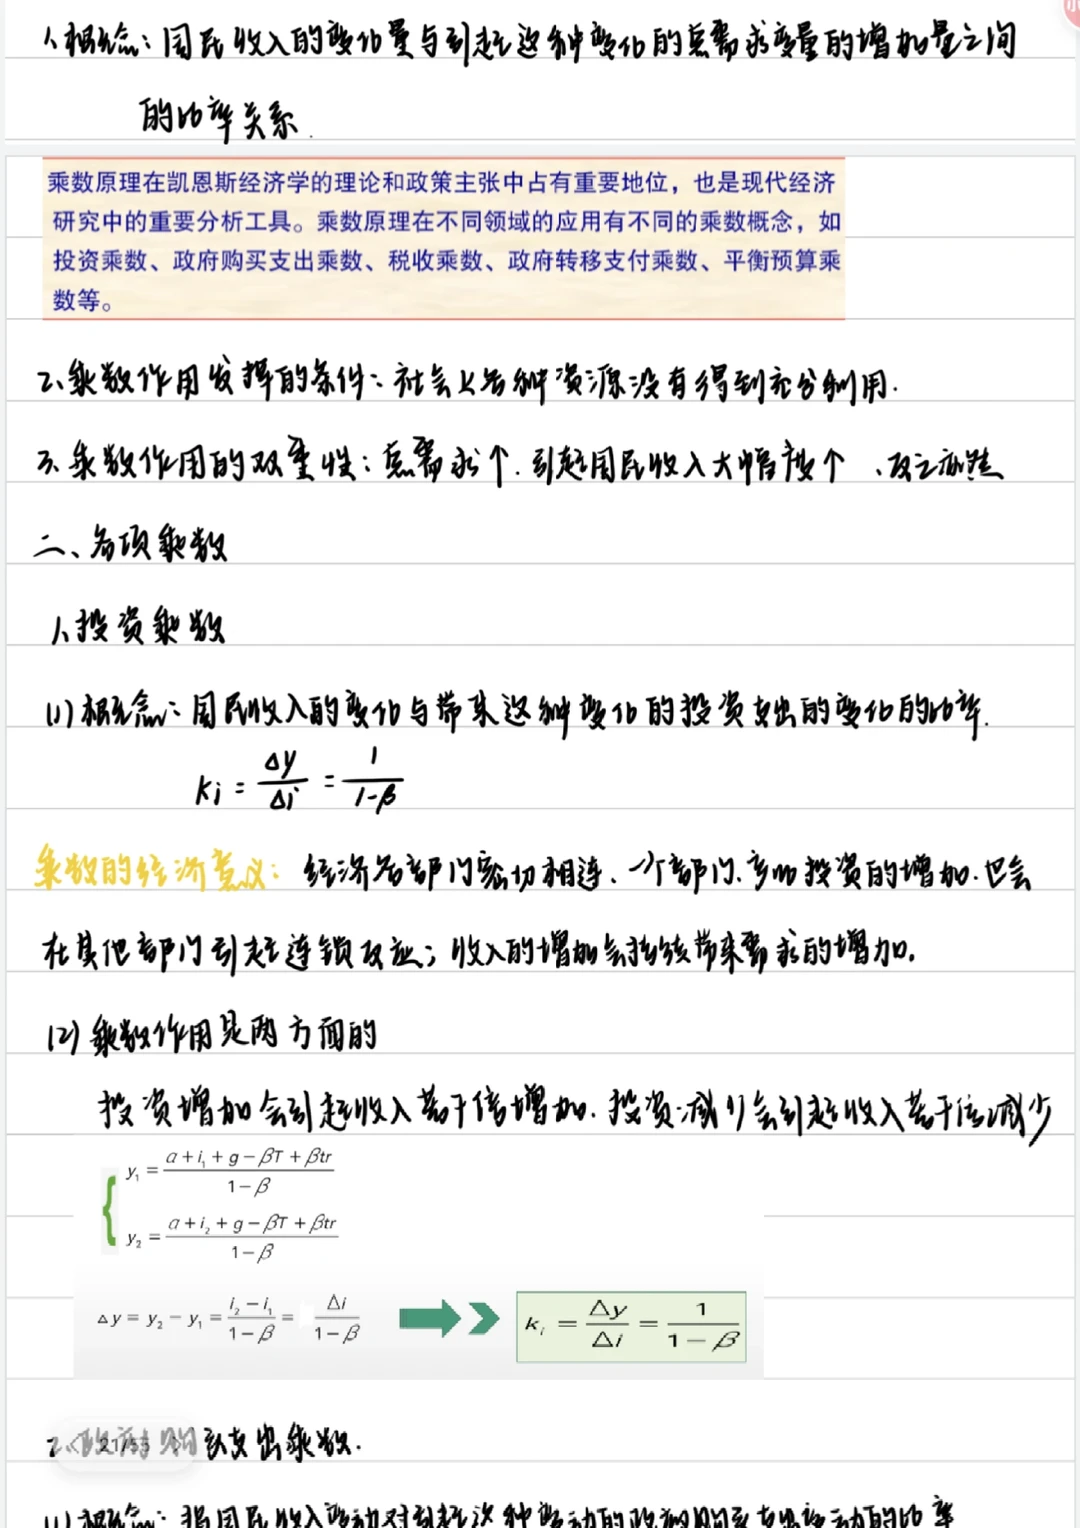 1、概念：国民收入的变化量与引起这种变化的总需求变量的增加量之间
的比率关系.
乘数原理在凯恩斯经济学的理论和政策主张中占有重要地位，也是现代经济
研究中的重要分析工具。乘数原理在不同领域的应用有不同的乘数概念，如
投资乘数、政府购买支出乘数、税收乘数、政府转移支付乘数、平衡预算乘
数等。
2、乘数作用发挥的条件：社会上各种资源没有得到充分利用.
3、乘数作用的双重性：总需求↑.引起国民收入大幅度↑、反之亦然
二、各项乘数
1、投资乘数
(1)概念：国民收入的变化与带来这种变化的投资支出的变化的比率.
Ki = Δy/Δi = 1/1-β
乘数的经济意义：经济各部门密切相连、一个部门、产业投资的增加.也会
在其他部门引起连锁反应；收入的增加会持续带来需求的增加.
(2)乘数作用是两方面的
投资增加会引起收入若干倍增加.投资减少会引起收入若干倍减少
y₁ = a+i₁+g-βT+βtr / 1-β
y₂ = a+i₂+g-βT+βtr / 1-β
Δy = y₂ - y₁ = i₂-i₁/1-β = Δi/1-β
kᵢ = Δy/Δi = 1/1-β
2、政府购买支出乘数.
21/55
(1)概念：指国民收入变动对引起这种变动的政府购买支出变动的比率